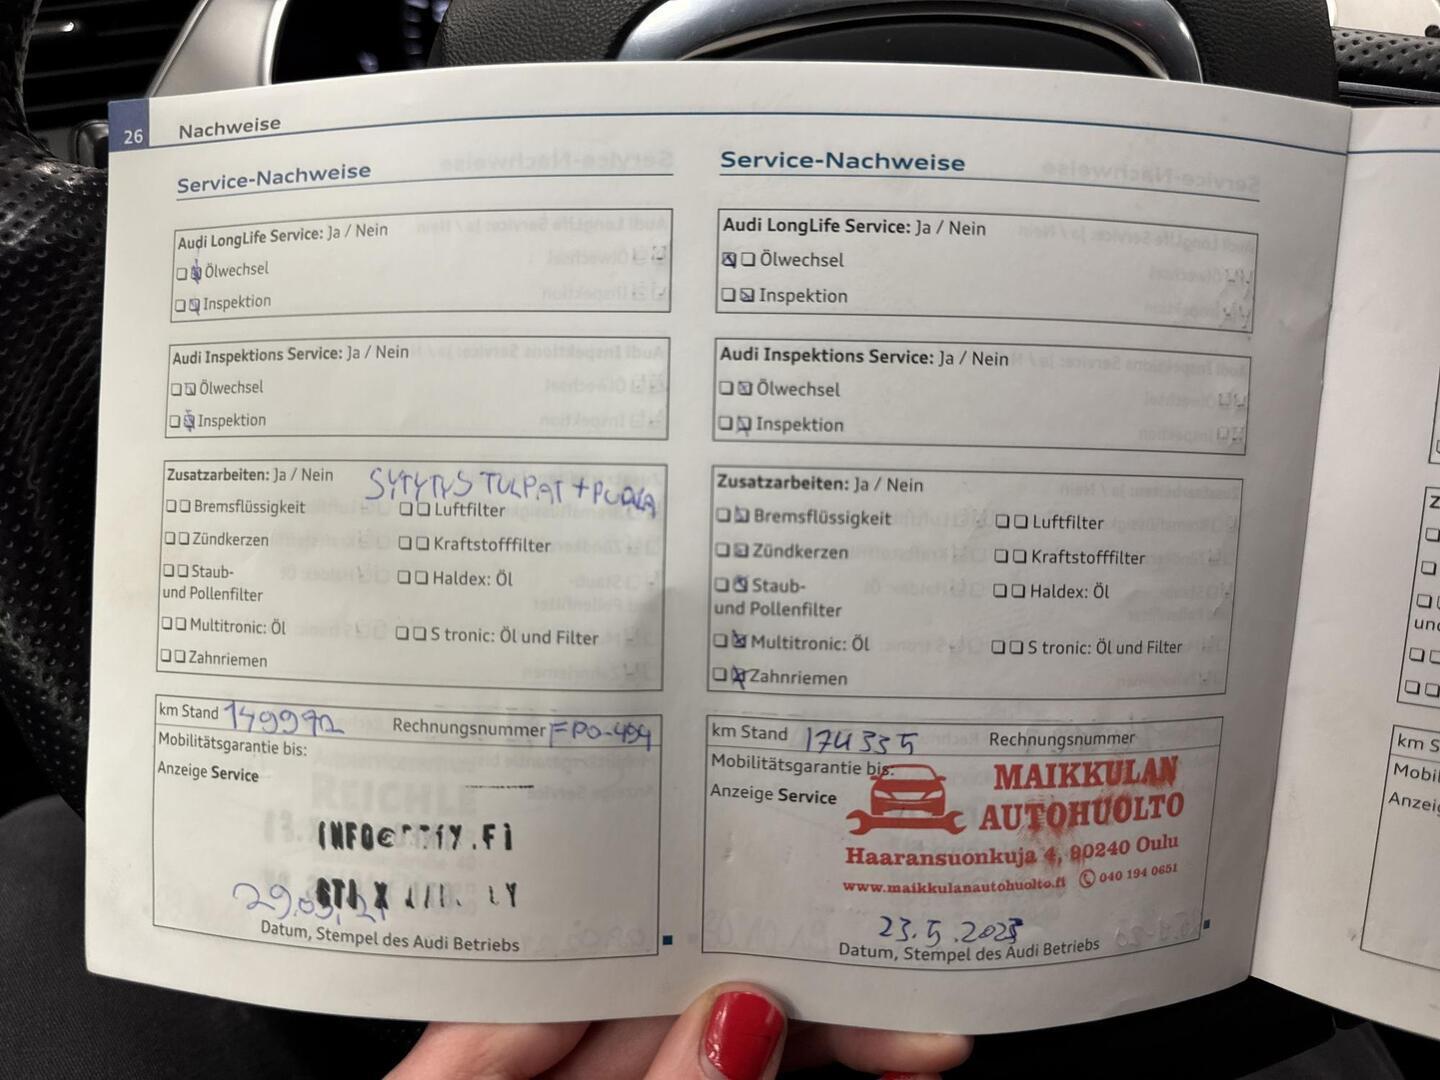 26 Nachweise
Service-Nachweise
Audi LongLife Service: Ja / Nein
Ölwechsel
Inspektion
Audi Inspektions Service: Ja / Nein
Ölwechsel
Inspektion
Zusatzarbeiten: Ja / Nein
SYTYTYS TULPAT + PUOLA
Bremsflüssigkeit Luftfilter
Zündkerzen Kraftstofffilter
Staub- Haldex: Öl
und Pollenfilter
Multitronic: Öl S tronic: Öl und Filter
Zahnriemen
km Stand 149972 Rechnungsnummer FPO-494
Mobilitätsgarantie bis:
Anzeige Service
29.09.21
Datum, Stempel des Audi Betriebs
Service-Nachweise
Audi LongLife Service: Ja / Nein
Ölwechsel
Inspektion
Audi Inspektions Service: Ja / Nein
Ölwechsel
Inspektion
Zusatzarbeiten: Ja / Nein
Bremsflüssigkeit Luftfilter
Zündkerzen Kraftstofffilter
Staub- Haldex: Öl
und Pollenfilter
Multitronic: Öl S tronic: Öl und Filter
Zahnriemen
km Stand 174335 Rechnungsnummer
Mobilitätsgarantie bis:
Anzeige Service
MAIKKULAN
AUTOHUOLTO
Haaransuonkuja 4, 90240 Oulu
www.maikkulanautohuolto.fi 040 194 0651
23.5.2023
Datum, Stempel des Audi Betriebs
km S
Mobil